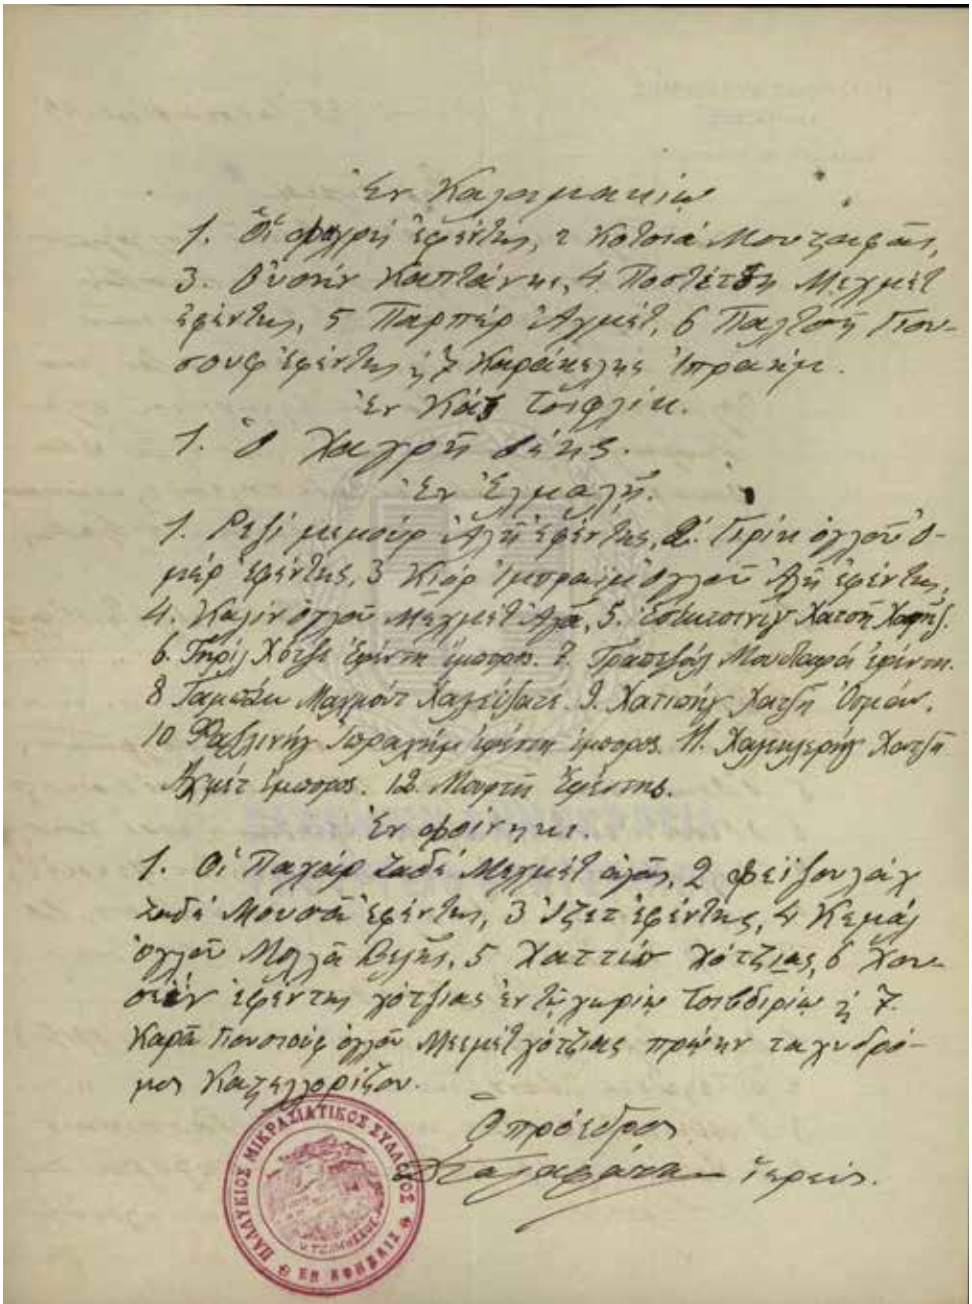 Ἐν Καλαμακίῳ
1. Οἱ Φαχρῆ ἐφέντης, 2 Κοτσιᾶ Μουσταφᾶς,
3. Οὐσνὴν Καπτάνης, 4 Ποστετζῆ Μεχμὲτ
ἐφέντης, 5 Παρπὲρ Ἀχμέτ, 6 Παλτσῆ Γιου-
σοὺφ ἐφέντης ἢ 7 Καράκελης Ἰπραήμ.
Ἐν Κὰς Τσιφλίκ.
1. Ὁ Χαγρῆ βέης.
Ἐν Ἐλμαλῆ.
1. Ρεζὶ μεμοὺρ Ἀλῆ ἐφέντης, 2. Γιρὶκ ὀγλοῦ Ὀ-
μὲρ ἐφέντης, 3 Κιὸρ Ἰμπραὶμ ὀγλοῦ Ἀλῆ ἐφέντης,
4. Καλὶν ὀγλοῦ Μεχμὲτ Ἀγᾶ, 5. Χατσῆ Χαφήζ.
6. Χότζε Ἐφέντη ἔμπορος. 7. Μουσταφᾶ ἐφέντη.
8 Μαχμούτ 9. Χατιπὴγ Χατζῆ Ὀσμάν.
10 Ἰπραχὴμ ἐφέντη ἔμπορος. 11. Χατζῆ
Ἀχμέτ ἔμπορος. 12. Μουρτῆ Ἐφέντης.
Ἐν Φοίνικι.
1. Οἱ Παχὰρ ζαδὲ Μεχμὲτ ἀγᾶς, 2 Φεϊζουλὰχ
ζαδὲ Μουσᾶ ἐφέντης, 3 Ἰζὲτ ἐφέντης, 4 Κεμὰλ
ὀγλοῦ Μολλᾶ Βελῆς, 5 Χαττὶπ χότζιας, 6 Χου-
σεῒν ἐφέντης χότζιας ἐν τῷ χωρίῳ ἢ 7.
Καρᾶ Γιουσοὺφ ὀγλοῦ Μεεμὲτ χότζιας πρώην ταχυδρό-
μος Καστελλορίζου.
Ὁ πρόεδρος
ἱερεύς.
ΠΑΛΛΥΚΙΟΣ ΜΙΚΡΑΣΙΑΤΙΚΟΣ ΣΥΛΛΟΓΟΣ
Ο ΤΕΛΜΗΣΣΟΣ
ΕΝ ΑΘΗΝΑΙΣ